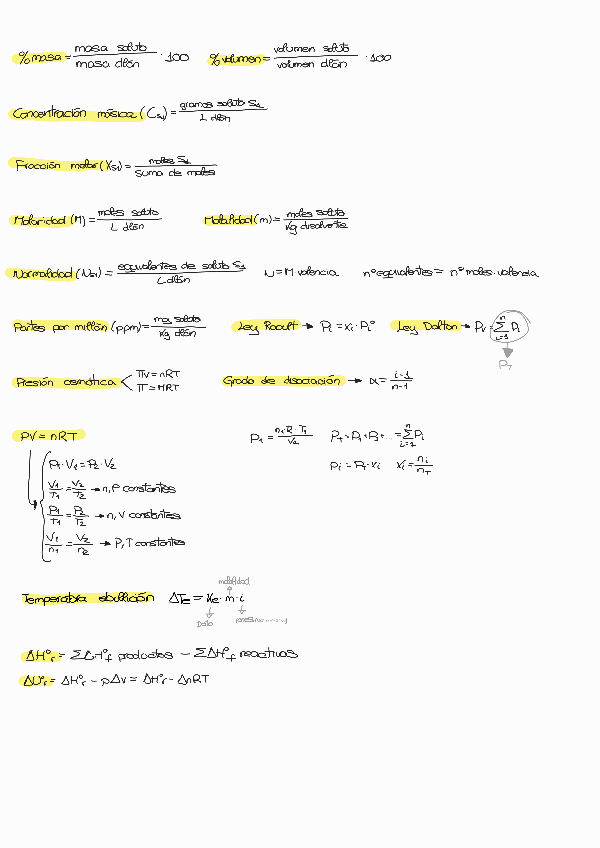 % masa = masa soluto / masa dlón · 100   % volumen = volumen soluto / volumen dlón · 100
Concentración másica (C_S1) = gramos soluto S1 / L dlón
Fracción molar (X_S1) = moles S1 / suma de moles
Molaridad (M) = moles soluto / L dlón   Molalidad (m) = moles soluto / Kg disolvente
Normalidad (N_S1) = equivalentes de soluto S1 / L dlón   N = M · valencia   nº equivalentes = nº moles · valencia
Partes por millón (ppm) = mg soluto / Kg dlón   Ley Raoult → Pi = xi · Pi°   Ley Dalton → Pv = Σ(i=1, n) Pi
PT
Presión osmótica < πV = nRT
π = MRT
Grado de disociación → α = i-1 / n-1
PV = nRT   P1 = n1·R·T1 / V2   PT = P1 + P2 + ... = Σ(i=1, n) Pi
P1 · V1 = P2 · V2   Pi = PT · xi   xi = ni / nT
V1/T1 = V2/T2 → n, P constantes
P1/T1 = P2/T2 → n, V constantes
V1/n1 = V2/n2 → P, T constantes
molalidad
Temperatura ebullición   ΔTe = Ke · m · i
Dato
ΔH°r = ΣΔH°f productos – ΣΔH°f reactivos
ΔU°r = ΔH°r – pΔV = ΔH°r – ΔnRT